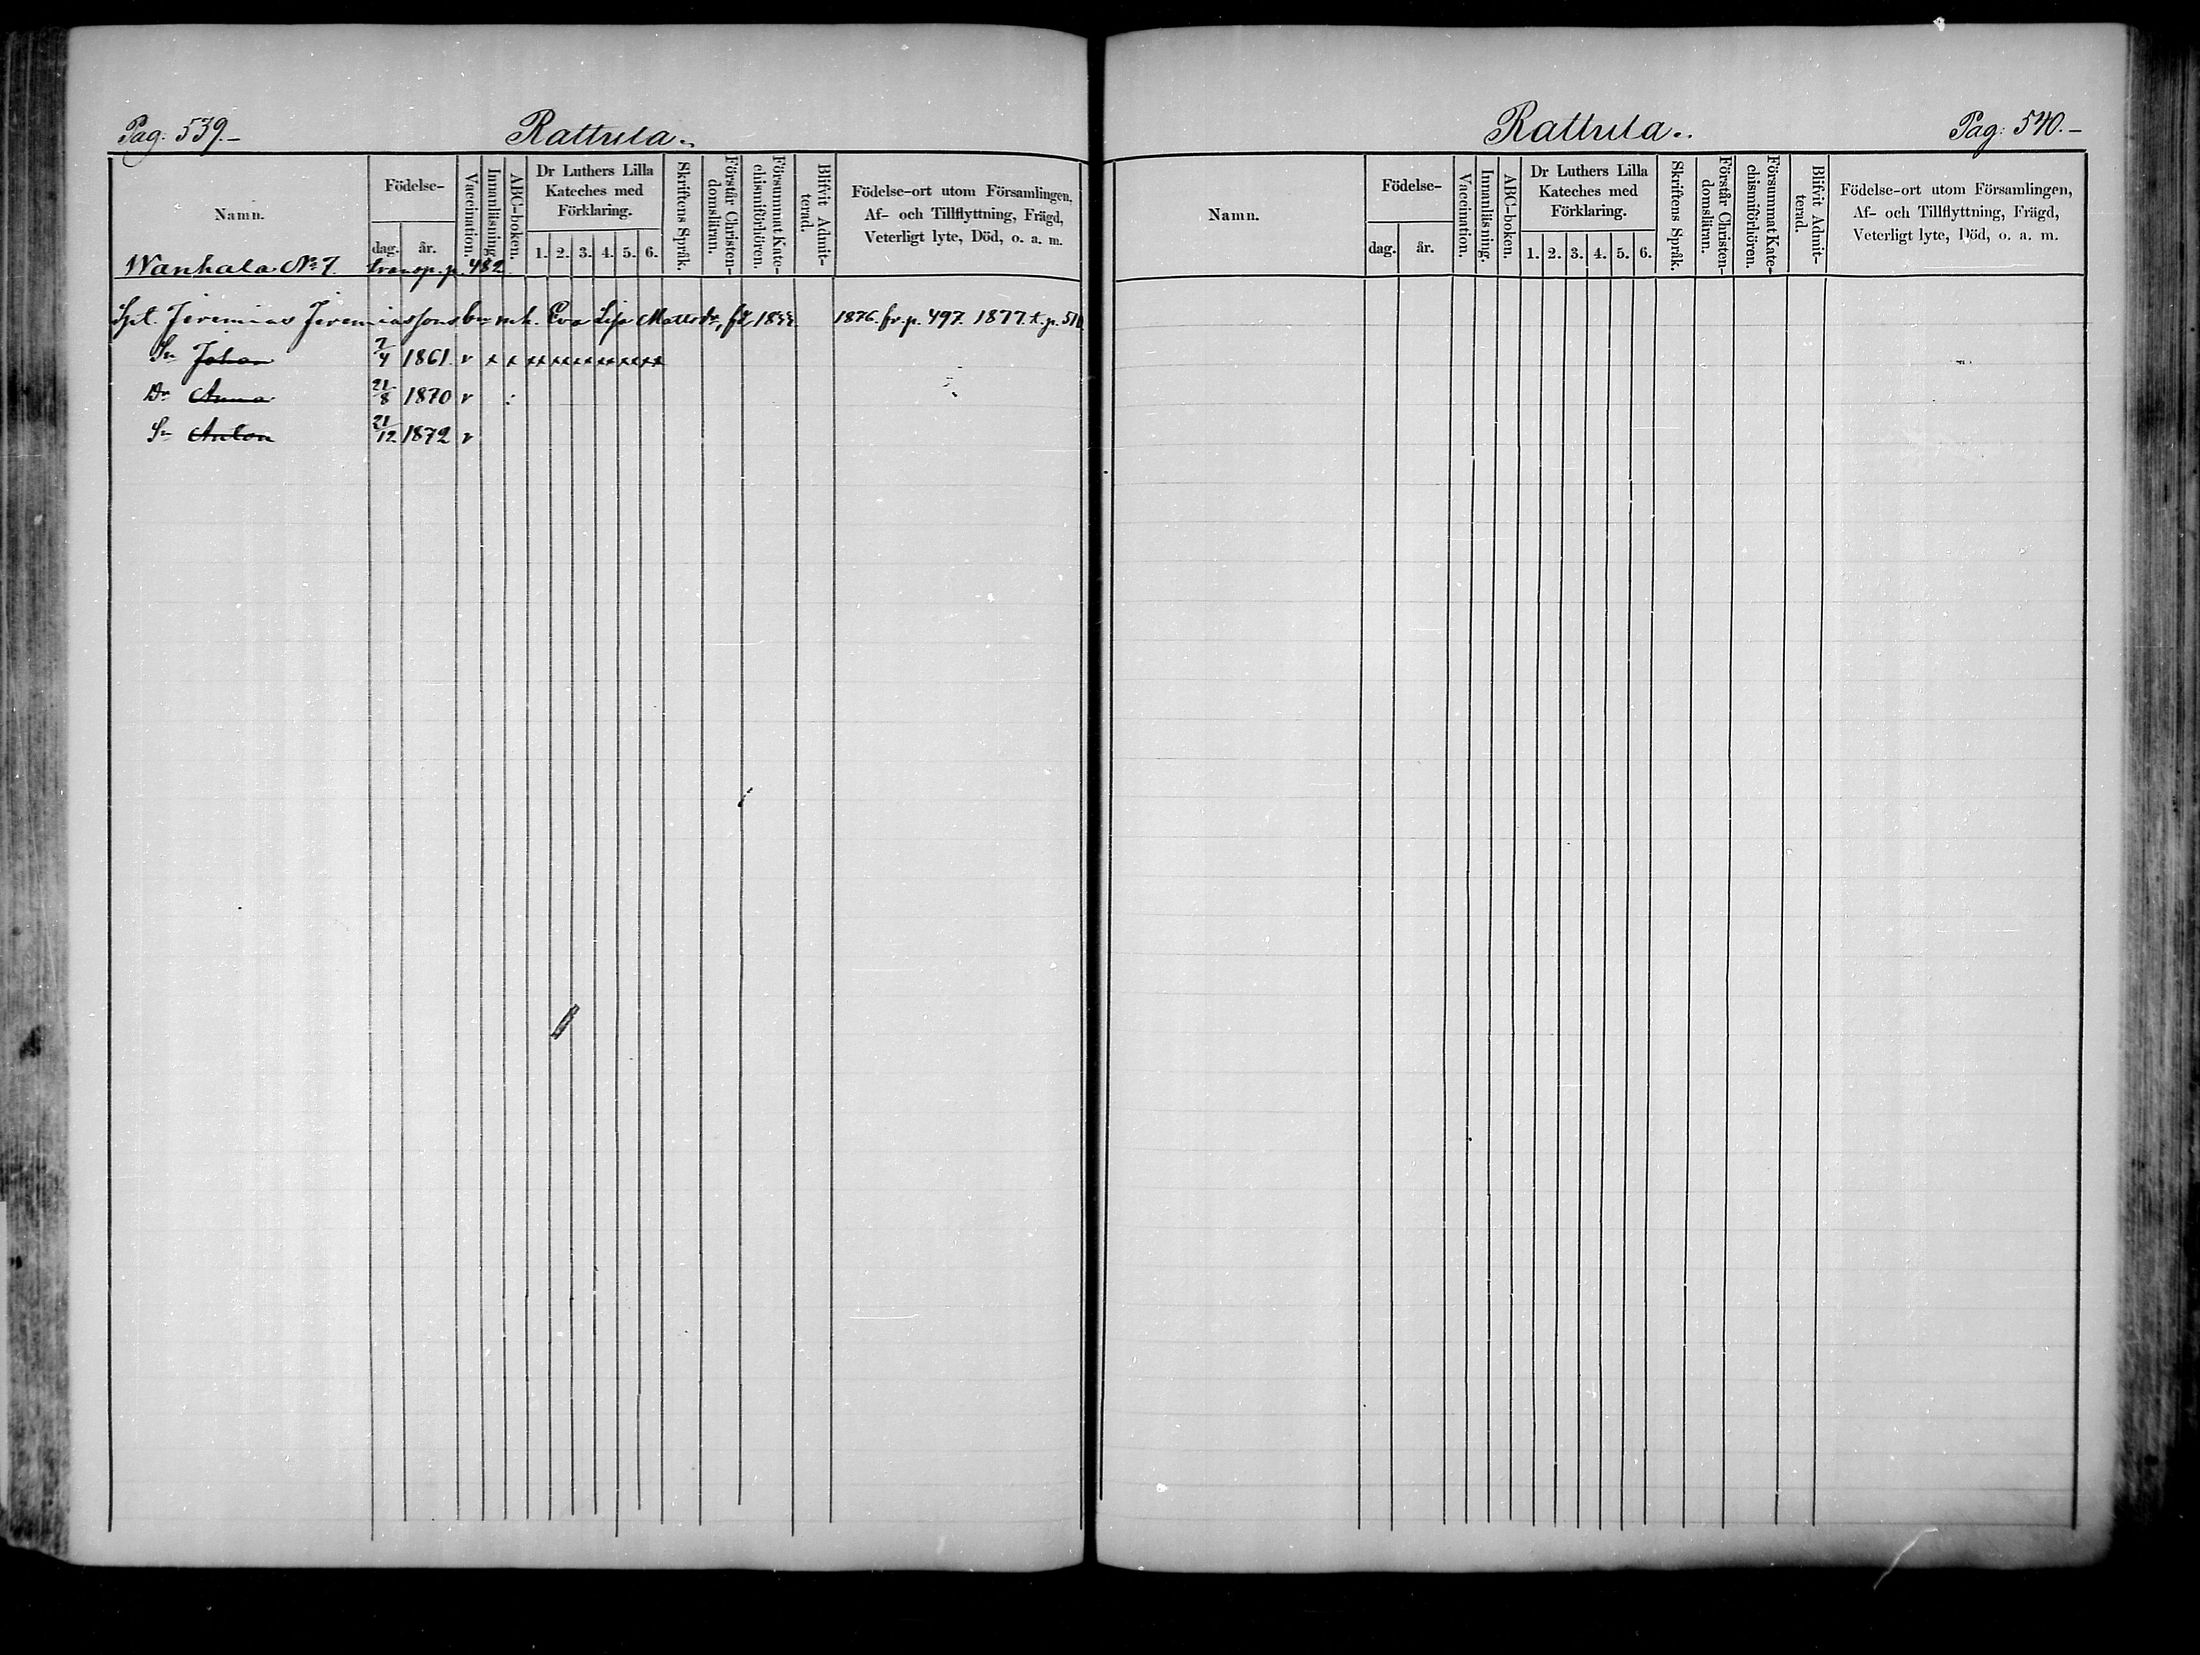 Pag: 539.-
Rattula.
Namn.
Födelse-
dag.
år.
Vaccination.
Innanläsning.
ABC-boken.
Dr Luthers Lilla
Kateches med
Förklaring.
1. 2. 3. 4. 5. 6.
Skriftens Språk.
Förstår Christen-
domsläran.
Försummat Kate-
chismiförhören.
Blifvit Admit-
terad.
Födelse-ort utom Församlingen,
Af- och Tillflyttning, Frägd,
Veterligt lyte, Död, o. a. m.
Wanhala No 7. transp. p. 482
Jeremias Jeremiassons Eva Lisa Mattsdr, 1876. fr. p. 497. 1877. t. p.
Sn Johan 7/4 1861. v x x xx xx xx xx xx xx
Dr Anna 21/8 1870 v :
Sn Anton 21/12 1872 v
Rattula.
Pag: 540.-
Namn.
Födelse-
dag.
år.
Vaccination.
Innanläsning.
ABC-boken.
Dr Luthers Lilla
Kateches med
Förklaring.
1. 2. 3. 4. 5. 6.
Skriftens Språk.
Förstår Christen-
domsläran.
Försummat Kate-
chismiförhören.
Blifvit Admit-
terad.
Födelse-ort utom Församlingen,
Af- och Tillflyttning, Frägd,
Veterligt lyte, Död, o. a. m.